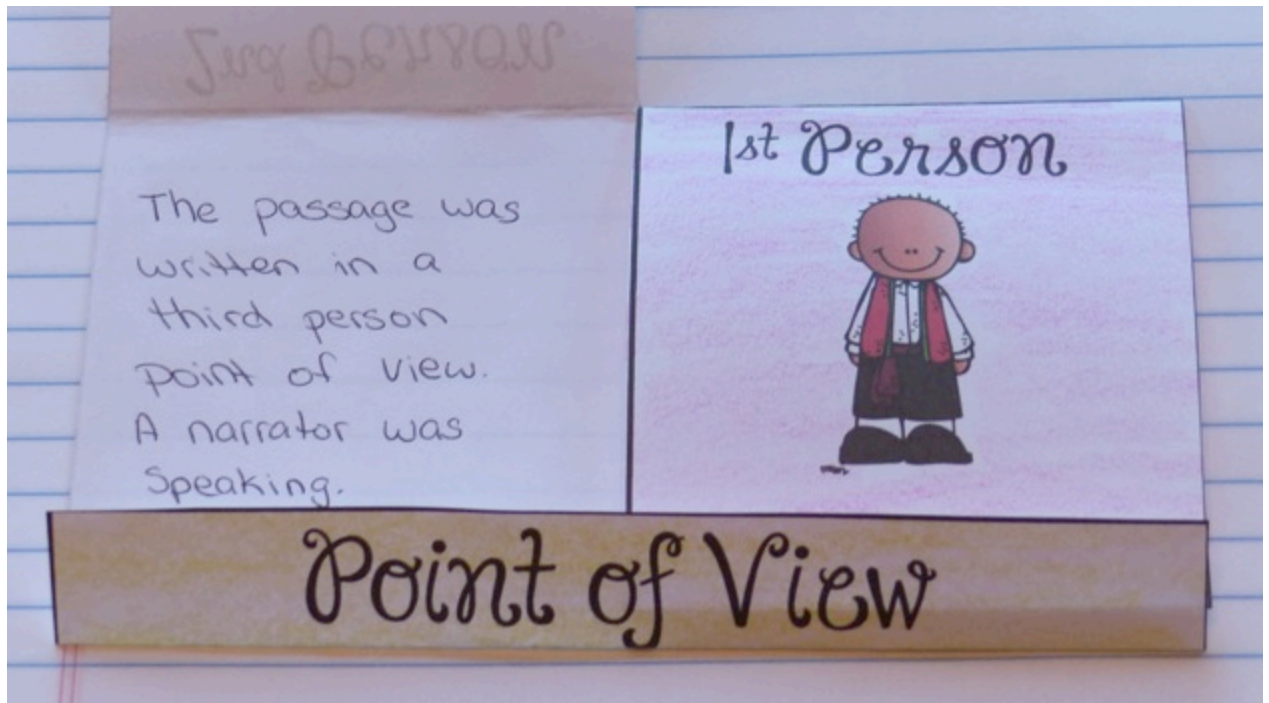 2nd Person
The passage was
written in a
third person
point of view.
A narrator was
speaking.
1st Person
Point of View